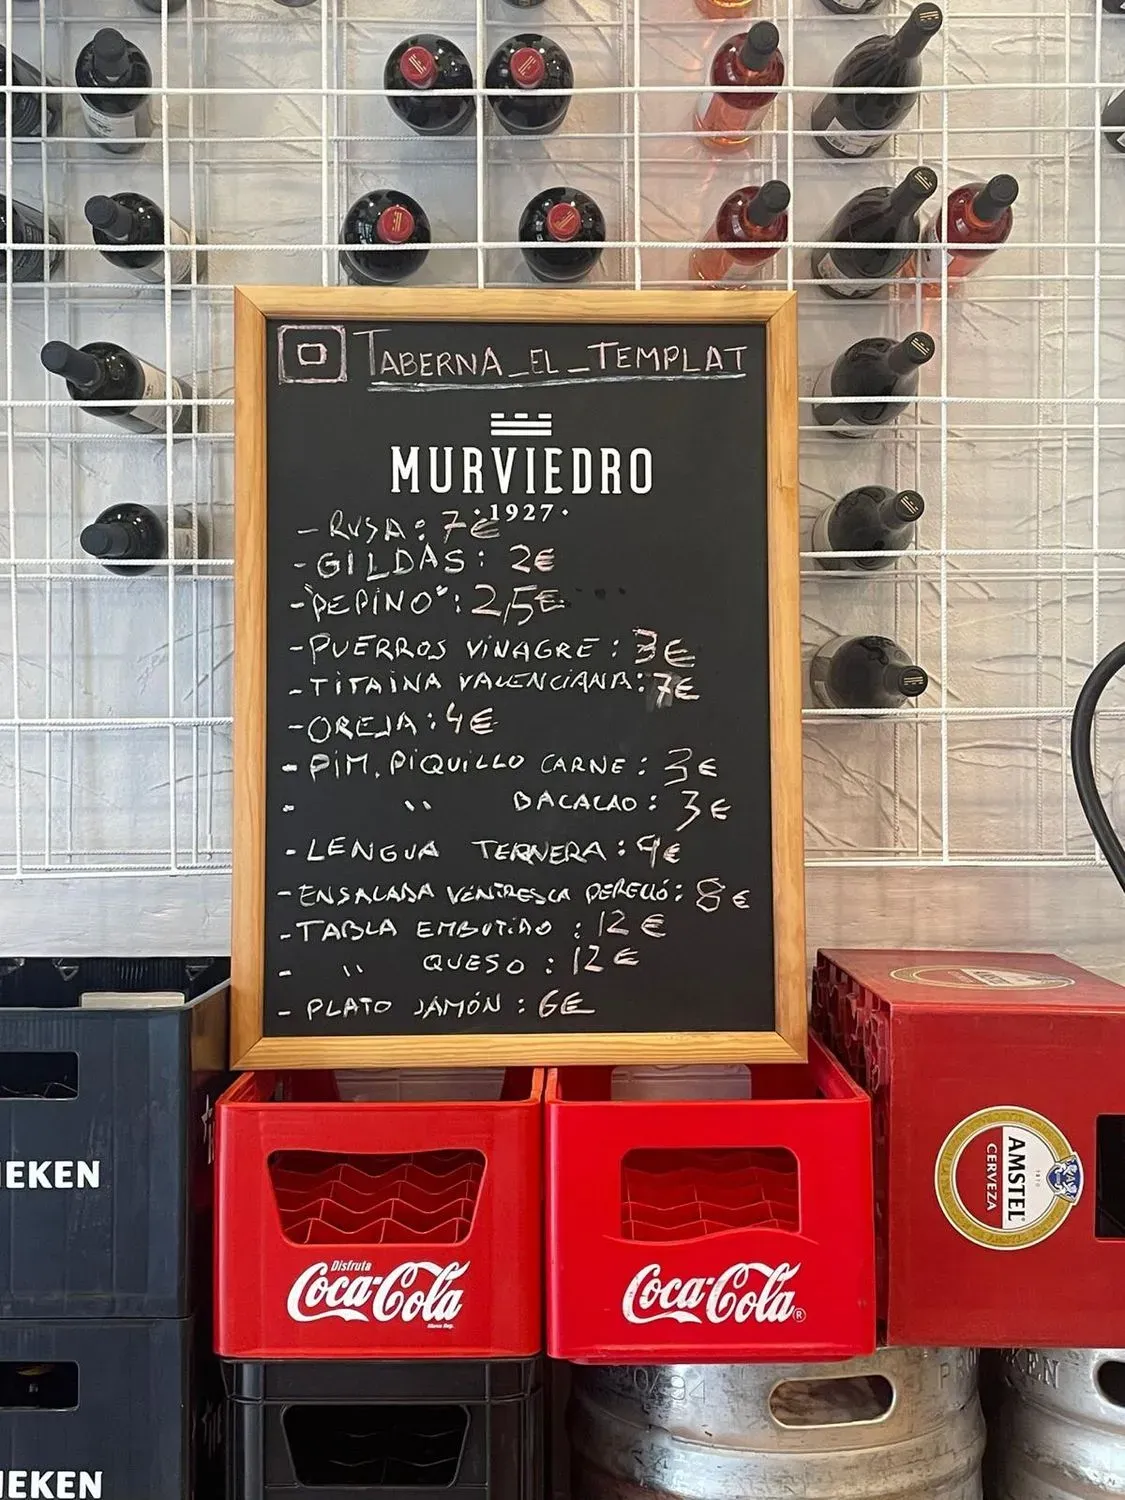 TABERNA_EL_TEMPLAT
MURVIEDRO
·1927·
- RUSA: 7€
- GILDAS: 2€
- "PEPINO": 2,5€
- PUERROS VINAGRE: 3€
- TITAINA VALENCIANA: 7€
- OREJA: 4€
- PIM. PIQUILLO CARNE: 3€
- " BACALAO: 3€
- LENGUA TERNERA: 9€
- ENSALADA VENTRESCA PERELLÓ: 8€
- TABLA EMBUTIDO: 12€
- " QUESO: 12€
- PLATO JAMÓN: 6€
EKEN
Disfruta
Coca-Cola
Coca-Cola®
AMSTEL
1870
CERVEZA
EKEN
KEN